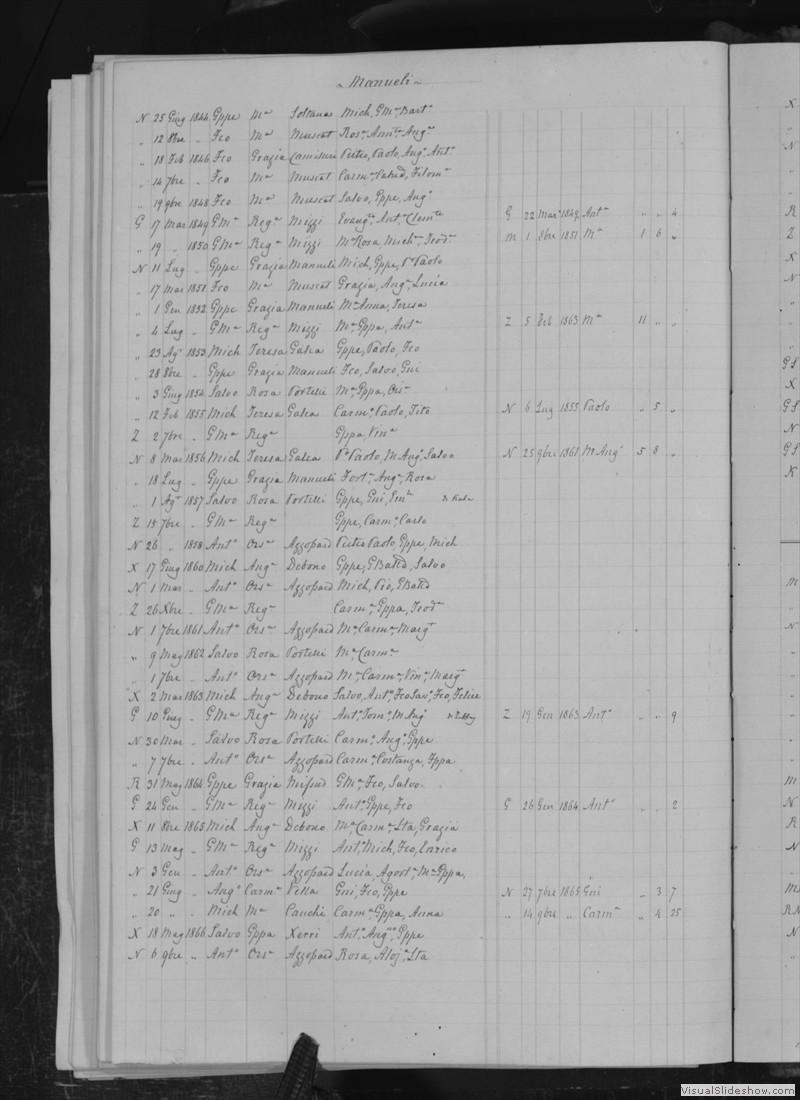 ~ Manueli ~
N 25 Giug 1844 Gppe Mª Soltanas Mich, GMª Bartº
„ 12 8bre „ Fco Mª Muscat Rosª, Annᵗª, Angª
„ 18 Feb 1846 Fco Grazia Camilleri Pietro, Paolo, Angº Antº
„ 14 7bre „ Fco Mª Muscat Carmª
„ 19 9bre 1848 Fco Mª Muscat Salvo, Gppe, Angº
G 17 Mar 1849 GMª Regª Mizzi Evangᵗª, Antª, Clemᵗª G 22 Marº 1849 Antª „ „ 4
„ 19 „ 1850 GMª Regª Mizzi Mª Rosa, Michª, Teodª M 1 8bre 1851 Mª 1 6 „
N 11 Lug „ Gppe Grazia Manueli Mich, Gppe, Pº Paolo
„ 17 Mar 1851 Fco Mª Muscat Grazia, Angª, Lucia
„ 1 Gen 1852 Gppe Grazia Manueli Mª Anna, Teresa
„ 4 Lug „ GMª Regª Mizzi Mª Gppa, Antª Z 5 Feb 1863 Mª 11 „ „
„ 23 Agº 1853 Mich Teresa Galea Gppe, Paolo, Fco
„ 28 8bre „ Gppe Grazia Manueli Fco, Salvo, Gni
„ 3 Giug 1854 Salvo Rosa Portelli Mª Gppa, Orsª
„ 12 Feb 1855 Mich Teresa Galea Carmº, Paolo, Tito N 6 Lug 1855 Paolo „ 5 „
Z 2 7bre „ GMª Regª Gppa, Vinª
N 8 Mar 1856 Mich Teresa Galea Pº Paolo, M Angº, Salvo N 25 9bre 1861 M Angº 5 8 „
„ 18 Lug „ Gppe Grazia Manueli Fortª, Angª, Rosa
„ 1 Agº 1857 Salvo Rosa Portelli Gppe, Gni,
Z 15 7bre „ GMª Regª Gppe, Carmº, Carlo
N 26 „ 1858 Antº Orsª Azzopard Pietro Paolo, Gppe, Mich
X 17 Giug 1860 Mich Angª Debono Gppe, GBattª, Salvo
N 1 Mar „ Antº Orsª Azzopard Mich, Pio, GBattª
Z 26 Xbre „ GMª Regª Carmª, Gppa, Teodª
N 1 7bre 1861 Antº Orsª Azzopard Mª Carmª, Margᵗ
„ 9 Mag 1862 Salvo Rosa Portelli Mª, Carmª
„ 1 7bre „ Antº Orsª Azzopard Mª, Carmª, Vinª, Margᵗ
X 2 Mar 1863 Mich Angª Debono Salvo, Antº, Fco Savº, Fco, Felice
G 10 Giug „ GMª Regª Mizzi Antº, Tomº, M Angº Z 19 Gen 1863 Antº „ „ 9
N 30 Mar „ Salvo Rosa Portelli Carmº, Angº, Gppe
„ 7 7bre „ Antº Orsª Azzopard Carmª, Costanza, Gppa
R 31 Mag 1864 Gppe Grazia Mifsud GMª, Fco, Salvo
G 24 Gen „ GMª Regª Mizzi Antº, Gppe, Fco G 26 Gen 1864 Antº „ „ 2
X 11 8bre 1865 Mich Angª Debono Mª Carmª, Sta, Grazia
G 13 Mag „ GMª Regª Mizzi Antº, Mich, Fco, Enrico
N 3 Gen „ Antº Orsª Azzopard Lucia, Agostª, Mª Gppa,
„ 21 Giug „ Angº Carmª Vella Gni, Fco, Gppe N 27 7bre 1865 Gni „ 3 7
„ 20 „ „ Mich Mª Cauchi Carmª, Gppa, Anna „ 14 9bre „ Carmª „ 4 25
X 18 Mag 1866 Salvo Gppa Xerri Antº, Angº, Gppe
N 6 9bre „ Antº Orsª Azzopard Rosa, Alojª, Sta
VisualSlideshow.com